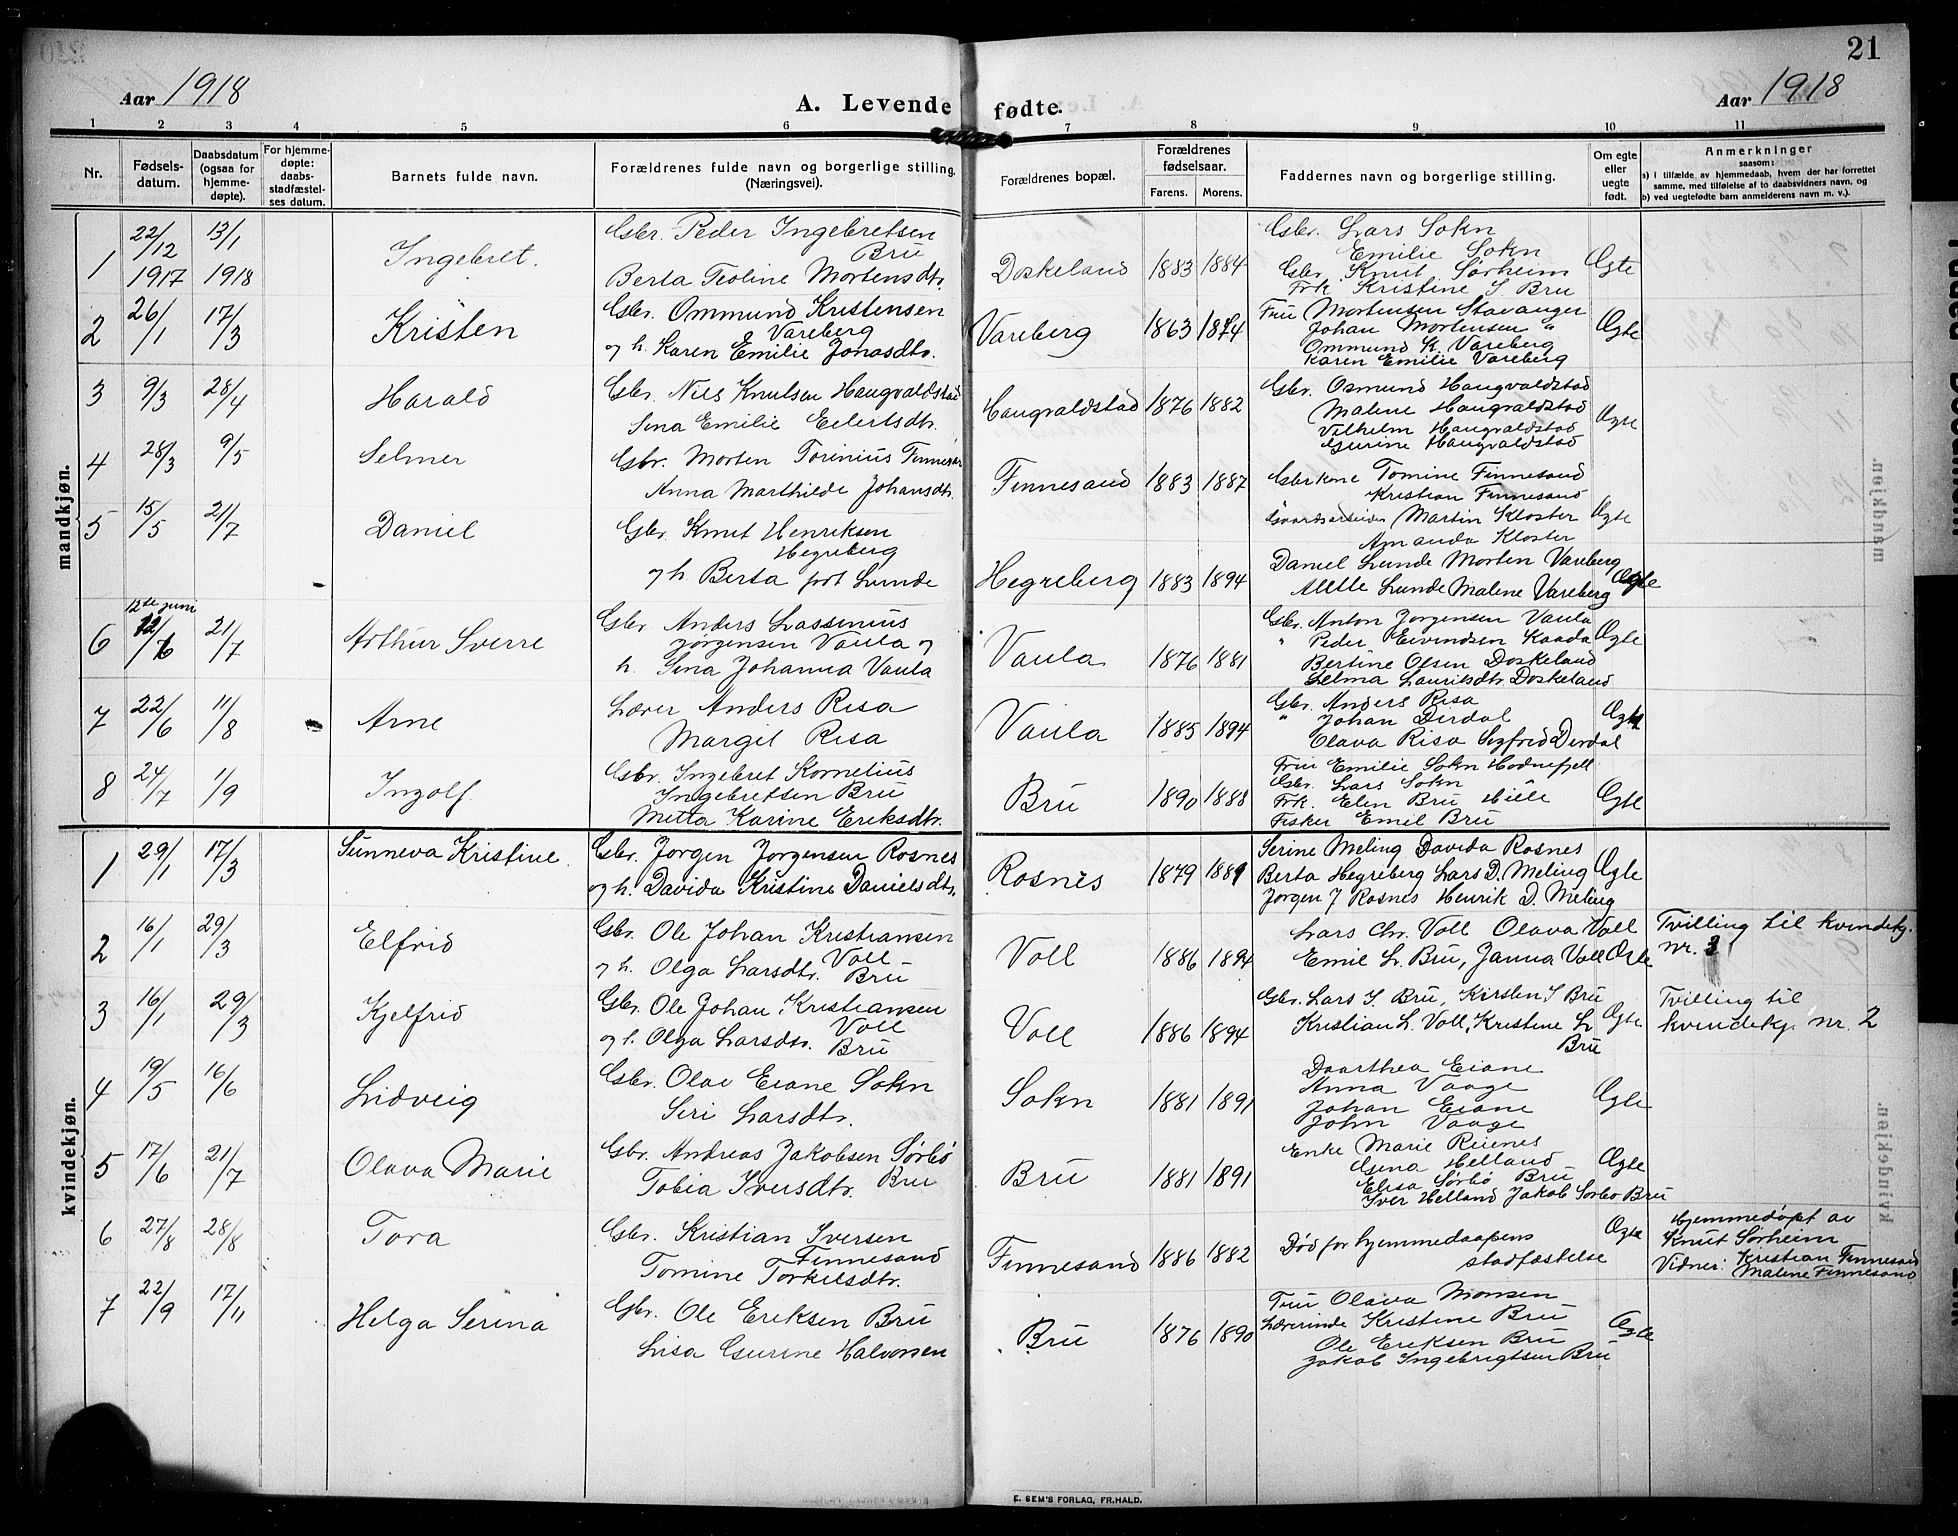 21
Aar 1918
A. Levende fødte.
Aar 1918
1 2 3 4 5 6 7 8 9 10 11
Nr.
Fødsels-
datum.
Daabsdatum
(ogsaa for
hjemme-
døpte).
For hjemme-
døpte:
daabs-
stadfæstel-
ses datum.
Barnets fulde navn.
Forældrenes fulde navn og borgerlige stilling.
(Næringsvei).
Forældrenes bopæl.
Forældrenes
fødselsaar.
Farens. Morens.
Faddernes navn og borgerlige stilling.
Om egte
eller
uegte
født.
Anmerkninger
saasom:
a) i tilfælde av hjemmedaab, hvem der har forrettet
samme, med tilføielse af to daabsvidners navn, og
b) ved uegtefødte barn anmelderens navn m. v.).
mandkjøn.
1
22/12 1917
13/1 1918
Ingebret.
Gbr. Peder Ingebretsen
Bru
Berta Teoline Mortensdtr.
Doskeland
1883 1884
Gbr. Lars Sokn
Emilie Sokn
Gbr. Knut Sørheim
Frk. Kristine S. Bru
Egte
2
26/1
17/3
Kristen
Gbr. Ommund Kristensen
Vareberg
og h. Karen Emilie Jonasdtr.
Vareberg
1863 1874
Fru Mortensen Stavanger
Johan Mortensen "
Ommund K. Vareberg
Karen Emilie Vareberg
Ægte
3
9/3
28/4
Harald
Gbr. Nils Knutsen Haugvaldstad
Sina Emilie Eilertsdtr.
Haugvaldstad
1876 1882
Gbr. Osmund Haugvaldstad
Malene Haugvaldstad
Vilhelm Haugvaldstad
Gurine Haugvaldstad
Ægte
4
28/3
9/5
Selmer
Gbr. Morten Torinius Finnesan
Anna Marthilde Johansdtr.
Finnesand
1883 1887
Gbrkone Tomine Finnesand
Kristian Finnesand
Gaardsarbeider Martin Kloster
Amanda Kloster
Ægte
5
15/5
21/7
Daniel
Gbr. Knut Henriksen
Hegreberg
og h. Berta født Lunde
Hegreberg
1883 1894
Daniel Lunde Morten Vareberg
Lunde Malene Vareberg
Ægte
6
12te juni
12/6
21/7
Arthur Sverre
Gbr. Anders Lassenius
Jørgensen Vaula og
h. Sina Johanna Vaula
Vaula
1876 1881
Gbr. Anton Jørgensen Vaula
" Peder Eivindsen Kaada
Bertine Olsen Doskeland
Selma Lauritsdtr. Doskeland
Ægte
7
22/6
11/8
Arne
Lærer Anders Risa
Margit Risa
Vaula
1885 1894
Gbr. Anders Risa
" Johan Dirdal
Olava Risa Sigfrid Dirdal
Ægte
8
24/7
1/9
Ingolf
Gbr. Ingebret Kornelius
Ingebretsen Bru
Mitta Karine Eriksdtr.
Bru
1890 1888
Fru Emilie Sokn Hodnefjell
Gbr. Lars Sokn
Frk. Elen Bru Hille
Fisker Emil Bru
Egte
kvindekjøn.
1
29/1
17/3
Sunneva Kristine.
Gbr. Jørgen Jørgensen Rosnes
og h. Davida Kristine Danielsdtr.
Rosnes
1879 1889
Serine Meling Davida Rosnes
Berta Hegreberg Lars D. Meling
Jørgen J Rosnes Henrik D. Meling
Ægte
2
16/1
29/3
Elfrid
Gbr. Ole Johan Kristiansen
Voll
og h. Olga Larsdtr. Bru
Voll
1886 1894
Lars Chr. Voll Olava Voll
Emil L. Bru, Janna Voll
Ægte
Tvilling til kvindekj.
nr. 3
3
16/1
29/3
Kjelfrid
Gbr. Ole Johan Kristiansen
Voll
og h. Olga Larsdtr. Bru
Voll
1886 1894
Gbr. Lars S. Bru, Kirsten S Bru
Kristian L. Voll, Kristine L
Bru
Ægte
Tvilling til
kvindekj. nr. 2
4
19/5
16/6
Lidveig
Gbr. Olai Eiane Sokn
Siri Larsdtr.
Sokn
1881 1891
Daarthea Eiane
Anna Vaage
Johan Eiane
John Vaage
Ægte
5
17/6
21/7
Olava Marie
Gbr. Andreas Jakobsen Sørbø
Bru
Tobia Iversdtr.
Bru
1881 1891
Enke Marie Reienes
Gina Helland
Elisa Sørbø Bru
Iver Helland Jakob Sørbø Bru
Ægte
6
27/8
28/8
Tora
Gbr. Kristian Iversen
Finnesand
Tomine Torkilsdtr.
Finnesand
1886 1882
Død før hjemmedaapens
stadfæstelse
Ægte
Hjemmedøpt av
Knut Sørheim
Vidner: Kristian Finnesand
Malene Finnesand
7
22/9
17/11
Helga Serina
Gbr. Ole Eriksen Bru
Lisa Gurine Halvorsen
Bru
1876 1890
Fru Olava Monsen
Lærerinde Kristine Bru
Ole Eriksen Bru
Jakob Ingebrigtsen Bru
Ægte
E. SEM'S FORLAG, FR.HALD.